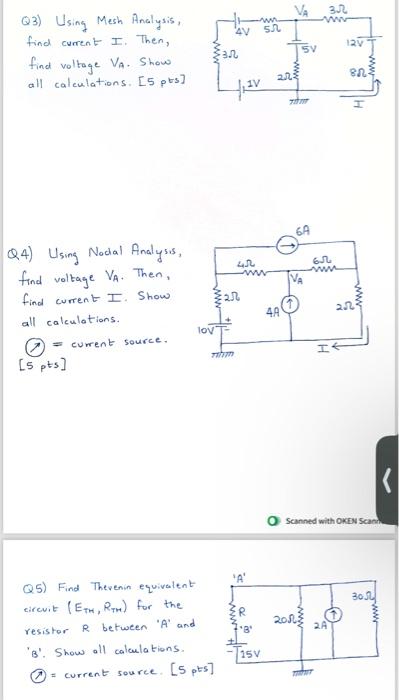 Q3) Using Mesh Analysis,
find current I. Then,
find voltage VA. Show
all calculations. [5 pts]
4V 5Ω VA 3Ω
3Ω 5V 12V
1V 2Ω 8Ω
I
Q4) Using Nodal Analysis,
find voltage VA. Then,
find current I. Show
all calculations.
= current source.
[5 pts]
6A
4Ω 6Ω
VA
2Ω 4A 2Ω
10V
I
Scanned with OKEN Scann
Q5) Find Thevenin equivalent
circuit (ETH, RTH) for the
resistor R between 'A' and
'B'. Show all calculations.
= current source. [5 pts]
'A'
R 20Ω 2A 30Ω
'B'
15V